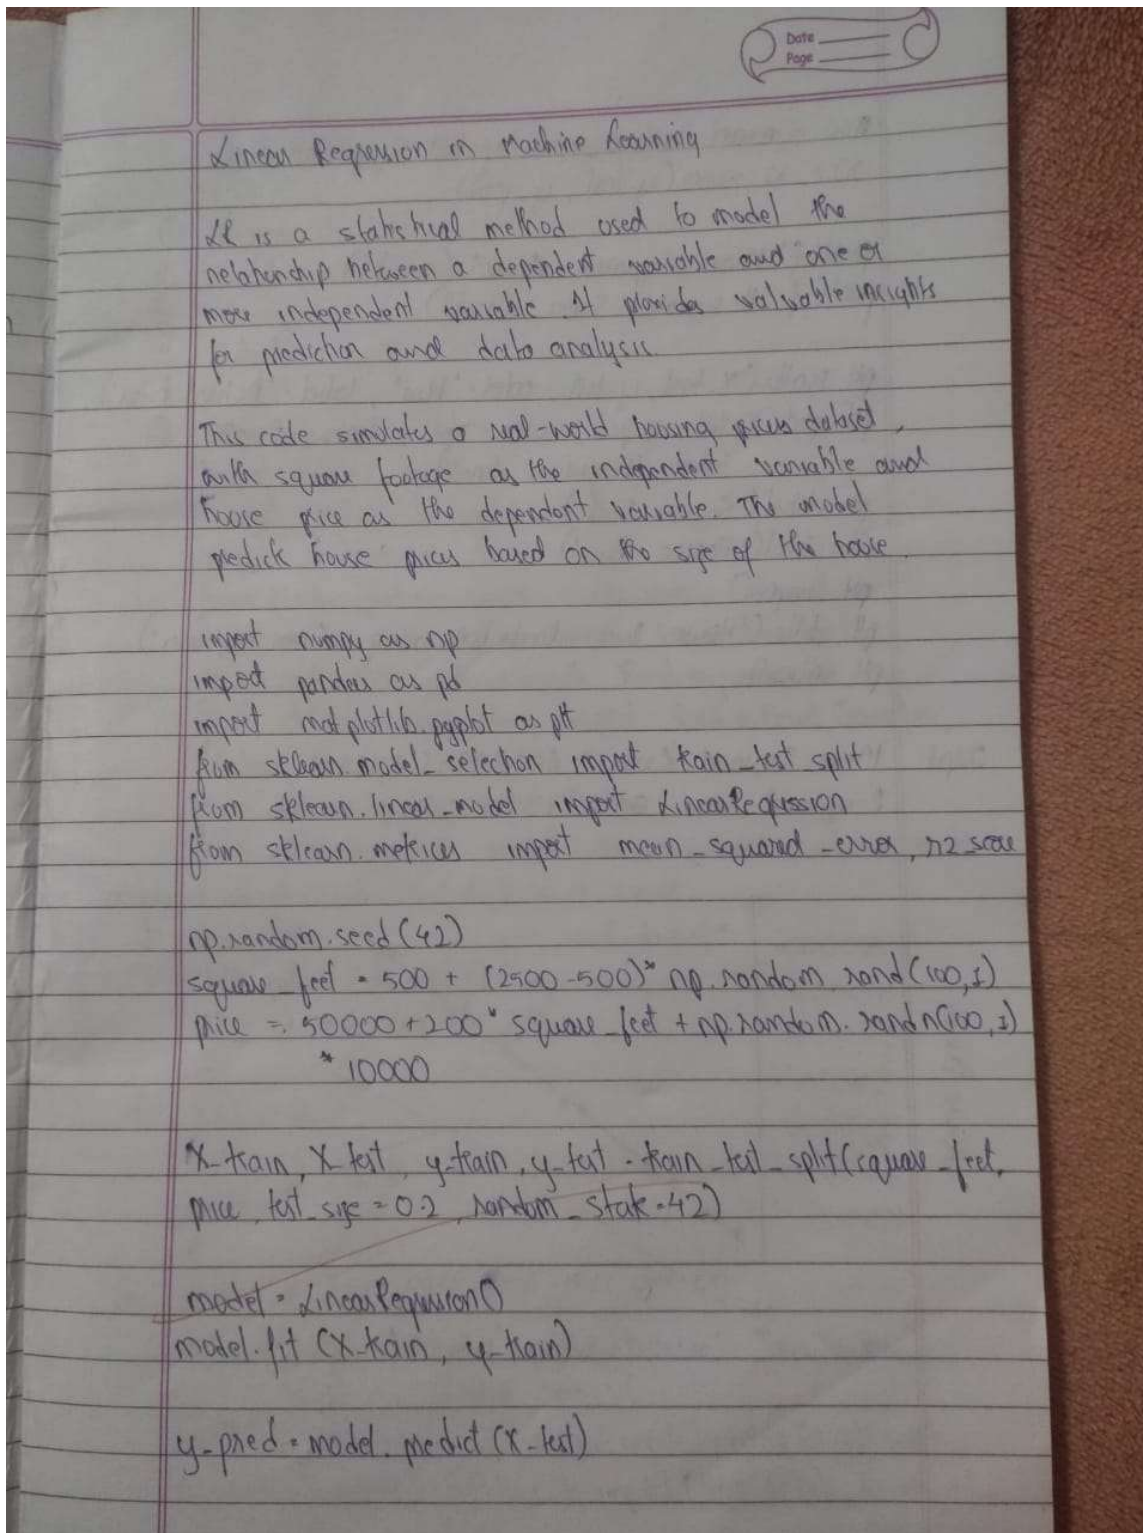 Date
Page
Linear Regression in Machine Learning
LR is a statistical method used to model the
relationship between a dependent variable and one or
more independent variable. It provides valuable insights
for prediction and data analysis.
This code simulates a real-world housing prices dataset,
with square footage as the independent variable and
house price as the dependent variable. The model
predicts house prices based on the size of the house.
import numpy as np
import pandas as pd
import matplotlib.pyplot as plt
from sklearn.model_selection import train_test_split
from sklearn.linear_model import LinearRegression
from sklearn.metrices import mean_squared_error, r2 score
np.random.seed(42)
square_feet = 500 + (2500-500)* np.random.rand(100,1)
price = 50000+200* square_feet + np.random.randn(100,1)
*10000
X_train, X_test, y_train, y_test = train_test_split(square_feet,
price, test_size = 0.2, random_state=42)
model = LinearRegression()
model.fit (X_train, y_train)
y_pred = model.predict(X_test)